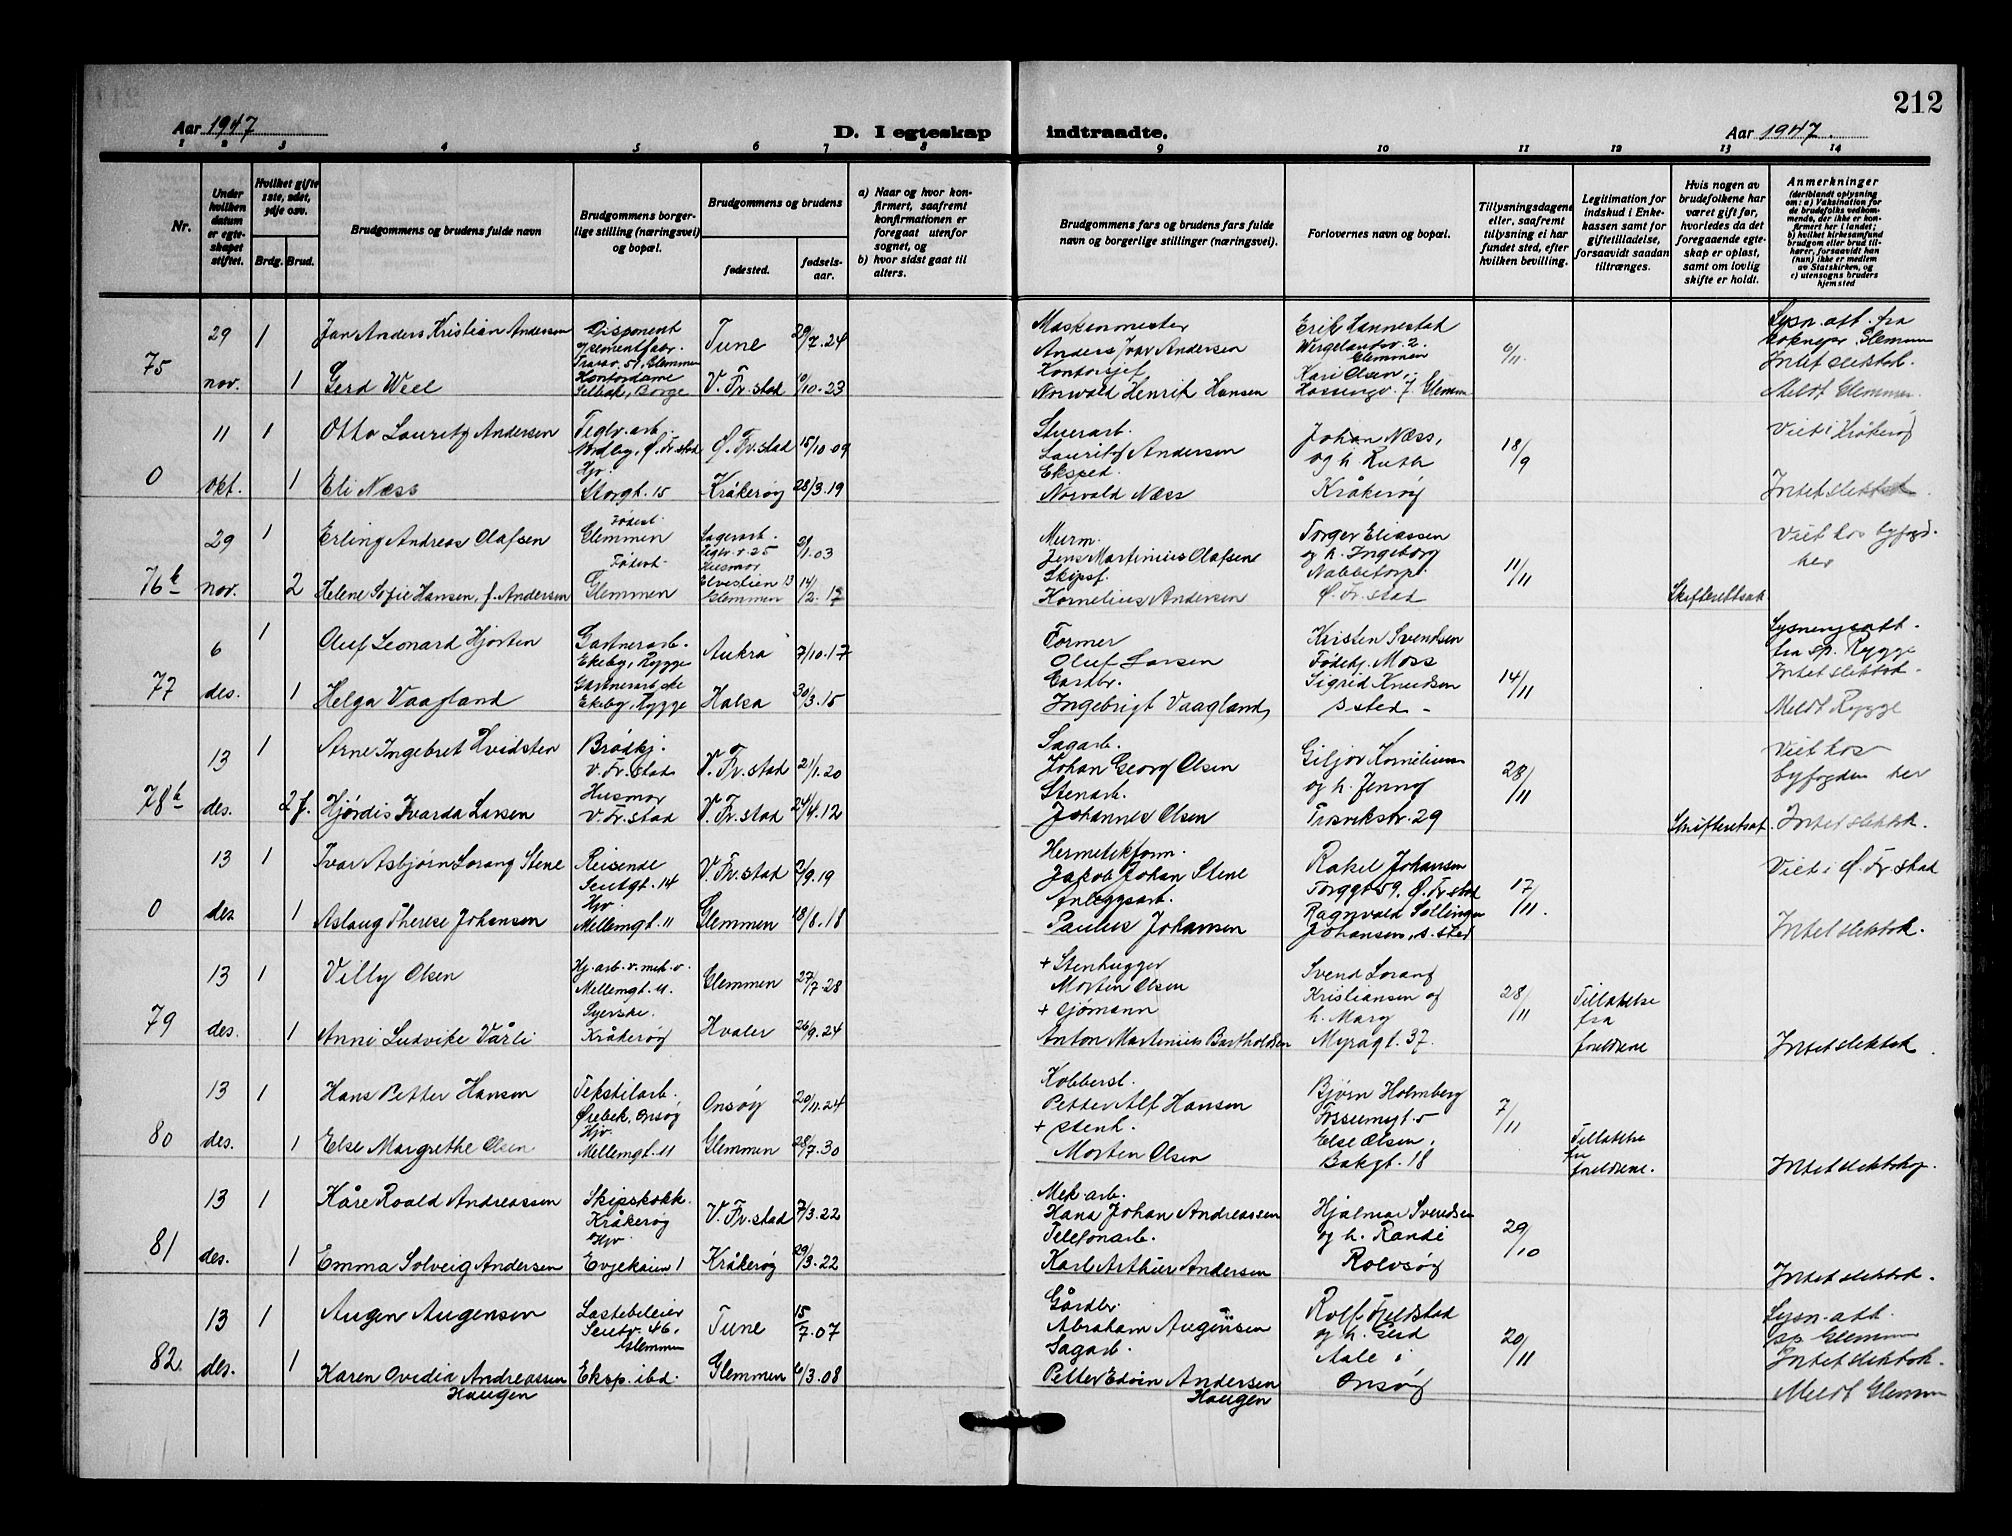 212
Aar 1947
D. I egteskap indtraadte.
Aar 1947.
1 2 3 4 5 6 7 8 9 10 11 12 13 14
Nr.
Under hvilken datum er egteskapet stiftet.
Hvilket gifte 1ste, 2det, 3dje osv.
Brdg. Brud.
Brudgommens og brudens fulde navn
Brudgommens borgerlige stilling (næringsvei) og bopæl.
Brudgommens og brudens
fødested.
fødselsaar.
a) Naar og hvor konfirmert, saafremt konfirmationen er foregaat utenfor sognet, og
b) hvor sidst gaat til alters.
Brudgommens fars og brudens fars fulde navn og borgerlige stillinger (næringsvei).
Forlovernes navn og bopæl.
Tillysningsdagene eller, saafremt tillysning ei har fundet sted, efter hvilken bevilling.
Legitimation for indskud i Enkekassen samt for giftetilladelse, forsaavidt saadan tiltrænges.
Hvis nogen av brudefolkene har været gift før, hvorledes da det foregaaende egteskap er opløst, samt om lovlig skifte er holdt.
Anmerkninger (deriblandt oplysning om: a) Vaksination for de brudefolks vedkommende, der ikke er konfirmert her i landet; b) hvilket kirkesamfund brudgom eller brud tilhører, forsaavidt han (hun) ikke er medlem av Statskirken, og c) utensogns bruders hjemsted
75
29 nov.
1
Jan Anders Kristian Andersen
Disponent
Glemmen
Tune
29/7.24
1
Gerd Weel
Kontordame
Selbak, Borge
V. Fr.stad
9/10.23
Maskinmester
Anders Ivar Andersen
Kontorsjef
Norvald Henrik Hansen
Erik Hannestad
Wergelandsv. 2.
Glemmen
Kari Olsen,
7 Glemmen
6/11.
Lysn.att. fra
soknepr. Glemmen
Intet slektsk.
Meldt Glemmen.
0
11 okt.
1
Otto Lauritz Andersen
Teglv.arb.
Nordby, Ø. Fr.stad
Ø. Fr.stad
15/10.09
1
Eli Næss
Hjv.
Storgt. 15
Kråkerøy
28/3.19
Stuerarb.
Lauritz Andersen
Eksped.
Norvald Næss
Johan Næss,
og h. Ruth
Kråkerøy
18/9
Viet i Kråkerøy
Intet slektsk.
76b
29 nov.
1
Erling Andreas Olafsen
Fødest.
Glemmen
Lagerarb.
Teglv.v. 25
21/1.03
2
Helene Sofie Hansen, f. Andersen
Fødest.
Glemmen
Husmor
Elvestien 13
Glemmen
14/2.
Murm.
Jens Martinius Olafsen
Skipsf.
Kornelius Andersen
Torger Eliassen
og h. Ingeborg
Nabbetorp.
Ø. Fr.stad
11/11
Skifterettsat.
Viet hos byfogd.
her
77
6 des.
1
Oluf Leonard Hjorten
Gartnerarb.
Ekeby, Rygge
Aukra
7/10.17
1
Helga Vaagland
Gartnerarb.ske
Ekeby, Rygge
Halsa
30/3.15
Former
Oluf Larsen
Gardbr.
Ingebrigt Vaagland
Kristen Svendsen
Fødehj. Moss
Sigrid Knudsen
s sted
14/11
Lysningsatt.
fra sp. Rygge
Intet slektsk.
Meldt Rygge
78b
13 des.
1
Arne Ingebret Hvidsten
Brødkj.
V. Fr.stad
V. Fr.stad
21/1.20
2 f.
Hjørdis Ivarda Larsen
Husmor
V. Fr.stad
V. Fr.stad
24/4.12
Sagarb.
Johan Georg Olsen
Stenarb.
Johannes Olsen
og h. Jenny
Trosvikstr. 29
28/11
Skifterettsat.
Viet hos
byfogden her
Intet slektsk.
0
13 des
1
Ivar Asbjørn Lorang Stene
Reisende
14
V. Fr.stad
2/9.19
1
Aslaug Therese Johansen
Hjv.
Mellemgt. 11
Glemmen
18/8.18
Hermetikform.
Jakob Johan Stene
Anleggsarb.
Paulus Johansen
Rakel Johansen
Torggt 59, Ø. Fr.stad
Ragnvald
Johansen, s. sted
17/11.
Viet i Ø. Fr.stad
Intet slektsk.
79
13 des.
1
Villy Olsen
Hj.arb. v. mek. v.
Mellemgt. 11.
Glemmen
27/7.28
1
Anni Ludvike Vårli
Syerske.
Kråkerøy
Hvaler
26/9.24
+ Stenhugger
Morten Olsen
+ sjømann
Anton Martinius Bartholdsen
Svend Lorang
Kristiansen og
h. Mary
Myragt. 37.
28/11
Tillatelse
fra
foreldrene
Intet slektsk.
80
13 des.
1
Hans Petter Hansen
Tekstilarb.
Ørebek, Onsøy
Onsøy
20/11.24
1
Else Margrethe Olsen
Hjv.
Mellemgt. 11
Glemmen
28/7.30
Kobbersl.
Petter Alf Hansen
+ Stenh.
Morten Olsen
Bjørn Holmberg
Fossumgt. 5
Else Olsen,
Bakgt. 18
7/11
Tillatelse
fra
foreldrene.
Intet slektskap.
81
13 des.
1
Kåre Roald Andreassen
Skipskokk.
Kråkerøy
V. Fr.stad
7/3.22
1
Emma Solveig Andersen
Hjv.
Evjekaien 1
Kråkerøy
29/3.22
Mek.arb.
Hans Johan Andreassen
Telefonarb.
Karl Arthur Andersen
Hjalmar Svendsen
og h. Randi
Rolvsøy
29/10
Intet slektsk.
82.
13 des.
1
Augen Augensen
Lastebileier
46,
Glemmen
Tune
15/7.07
1
Karen Ovidia Andreassen
Haugen
Eksp. ibd.
Glemmen
6/3.08
Gårdbr.
Abraham Augensen
Sagarb.
Petter Edvin Andersen
Haugen
Rolf Fjeldstad
og h. Gerd
Aale i
Onsøy
20/11
Lysn.att.
sp. Glemmen
Intet slektsk.
Meldt Glemmen